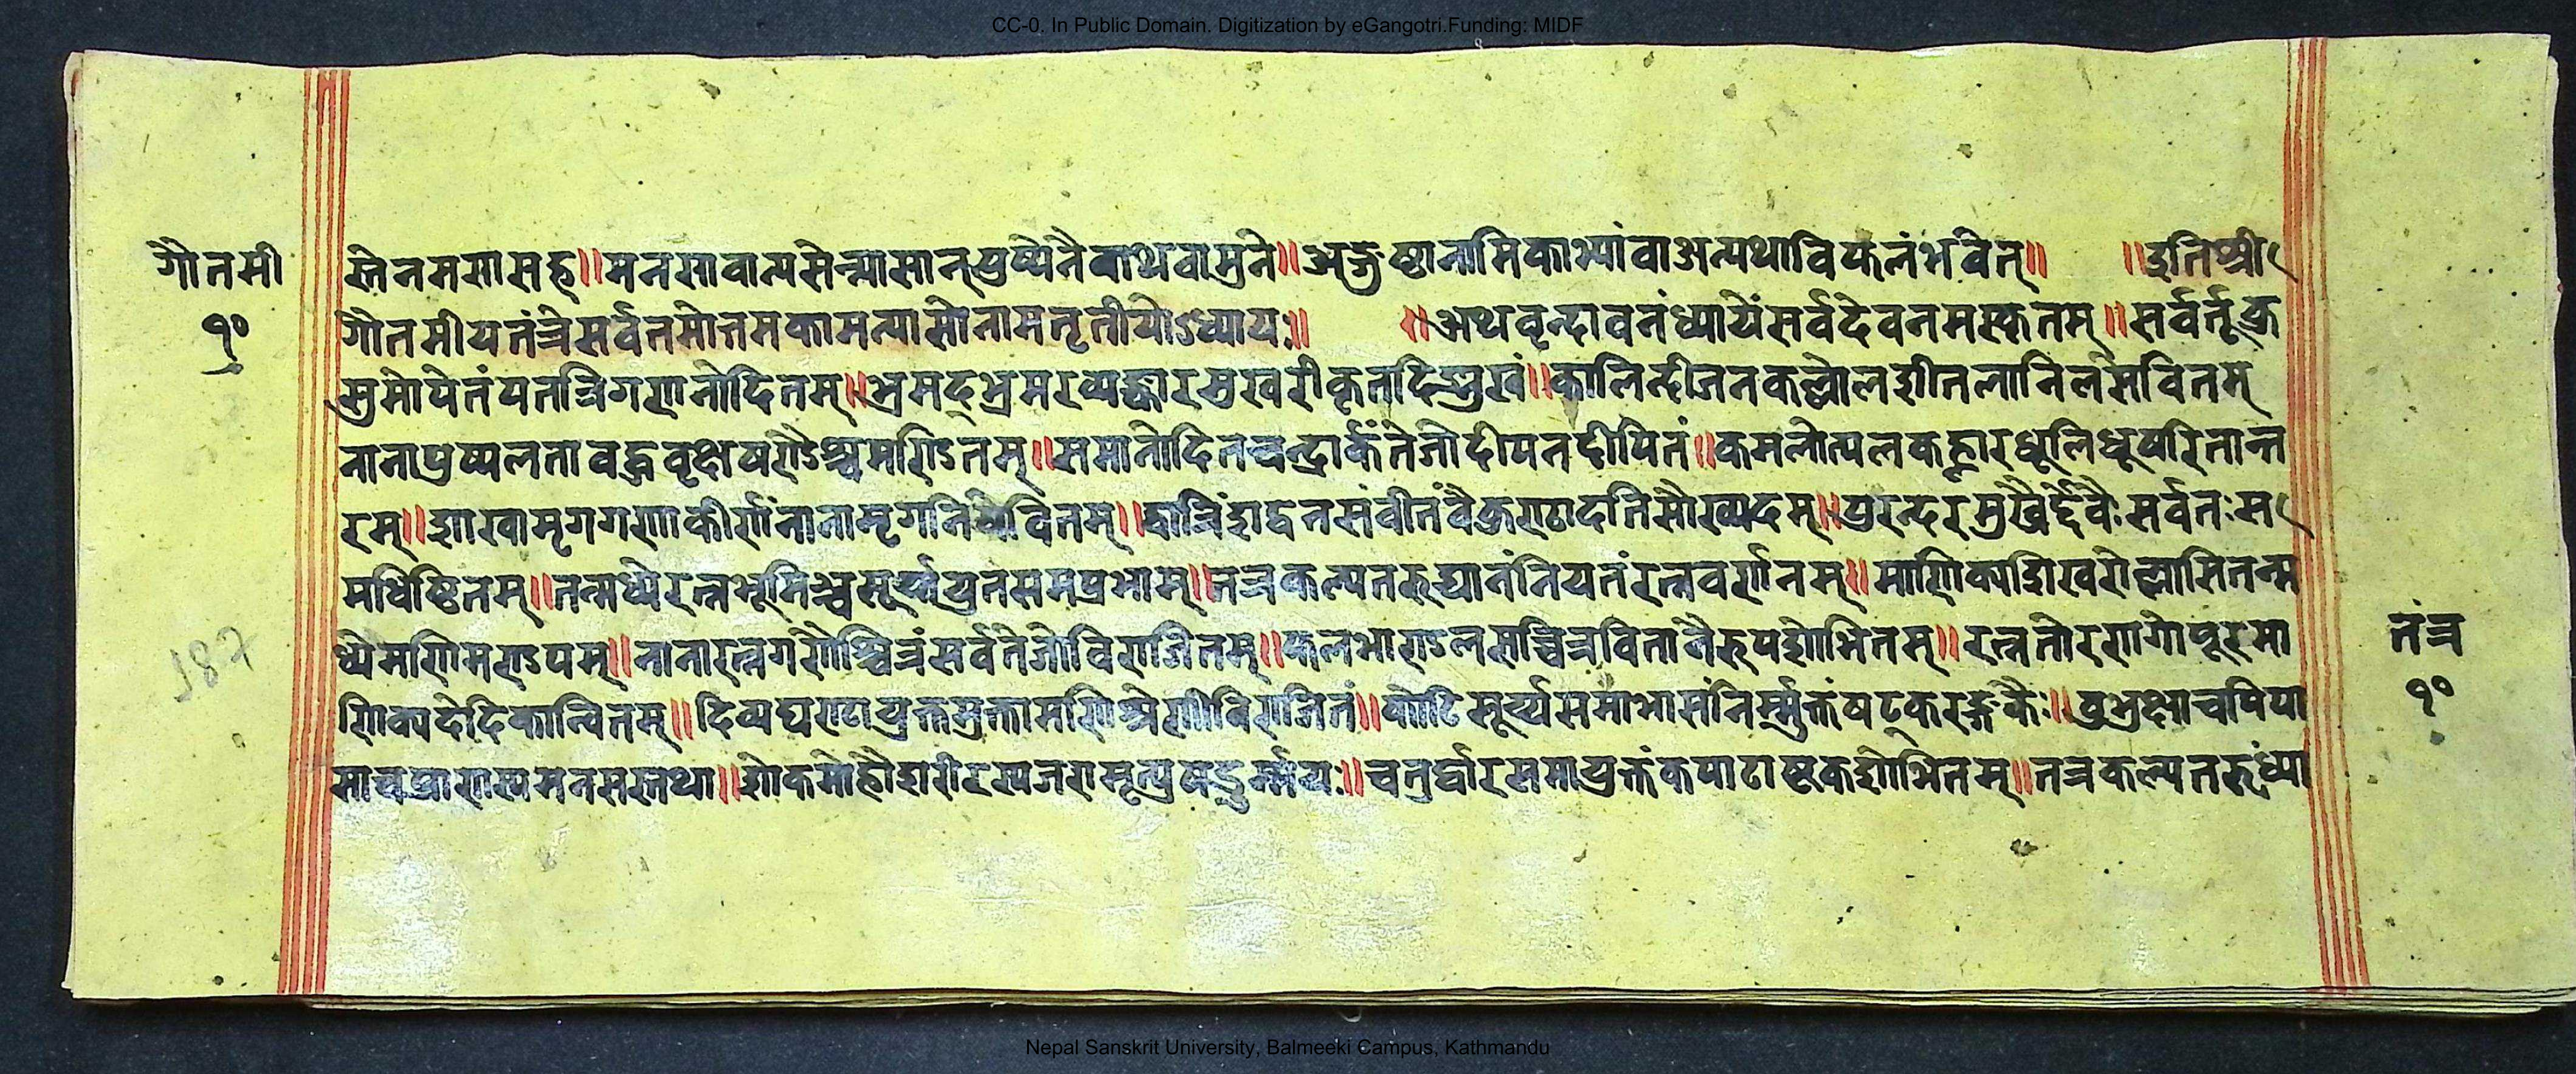 CC-0. In Public Domain. Digitization by eGangotri.Funding: MIDF
गौतमी
१०
स्तेनमरासह॥मनसावान्यसेन्न्यासान्पुष्पेनैवाथवामुने॥अङ्गुष्ठानामिकाभ्यांवाअन्यथाविफलंभवेत्॥ ॥इतिश्री
गौतमीयतंत्रेसर्वतमोत्तमकामन्यासोनामतृतीयोऽध्यायः॥ ॥अथवृन्दावनंध्यायेंसर्वदेवनमस्कृतम्॥सर्वर्तूकु
सुमोपेतंपतत्रिगणनादितम्॥भ्रमद्भ्रमरझङ्कारमुखरीकृतदिङ्मुखं॥कालिन्दीजलकल्लोलशीतलानिलसेवितम्
नानापुष्पलताबद्धवृक्षषण्डैश्चमण्डितम्॥समानोदितचन्द्रार्कंतेजोदीपनदीपितं॥कमलोत्पलकह्लारधूलिधूषरितान्त
रम्॥शाखामृगगणाकीर्णंनानामृगनिषेवितम्॥द्वात्रिंशद्वनसंवीतंवैकुण्ठादतिसौख्यदम्॥पुरन्दरमुखैर्द्देवैःसर्वतःस
मधिष्ठितम्॥तन्मध्येरत्नभूमिञ्चसूर्य्यायुतसमप्रभाम्॥तत्रकल्पतरुद्यानंनियतंरत्नवर्षनम्॥माणिक्यशिखरोल्लासितन्म
ध्येमणिमण्डपम्॥नानारत्नगणैश्चित्रंसर्वतेजोविराजितम्॥फलभाराऽलसच्चित्रवितानैरुपशोभितम्॥रत्नतोरणगोपूरमा
णिक्यवेदिकान्वितम्॥दिव्यघण्टायुक्तमुक्तामणिश्रेणीविराजितं॥कोटिसूर्य्यसमाभासंनिर्म्मुक्तंषट्करङ्गकैः॥वुभुक्षाचपिपा
साचप्राणस्यमनसस्तथा॥शोकमोहौशरीरस्यजरामृत्युषडुर्म्मयः॥चतुर्द्वारसमायुक्तंकपाटाष्टकशोभितम्॥तत्रकल्पतरुंध्या
तंत्र
१०
187
Nepal Sanskrit University, Balmeeki Campus, Kathmandu